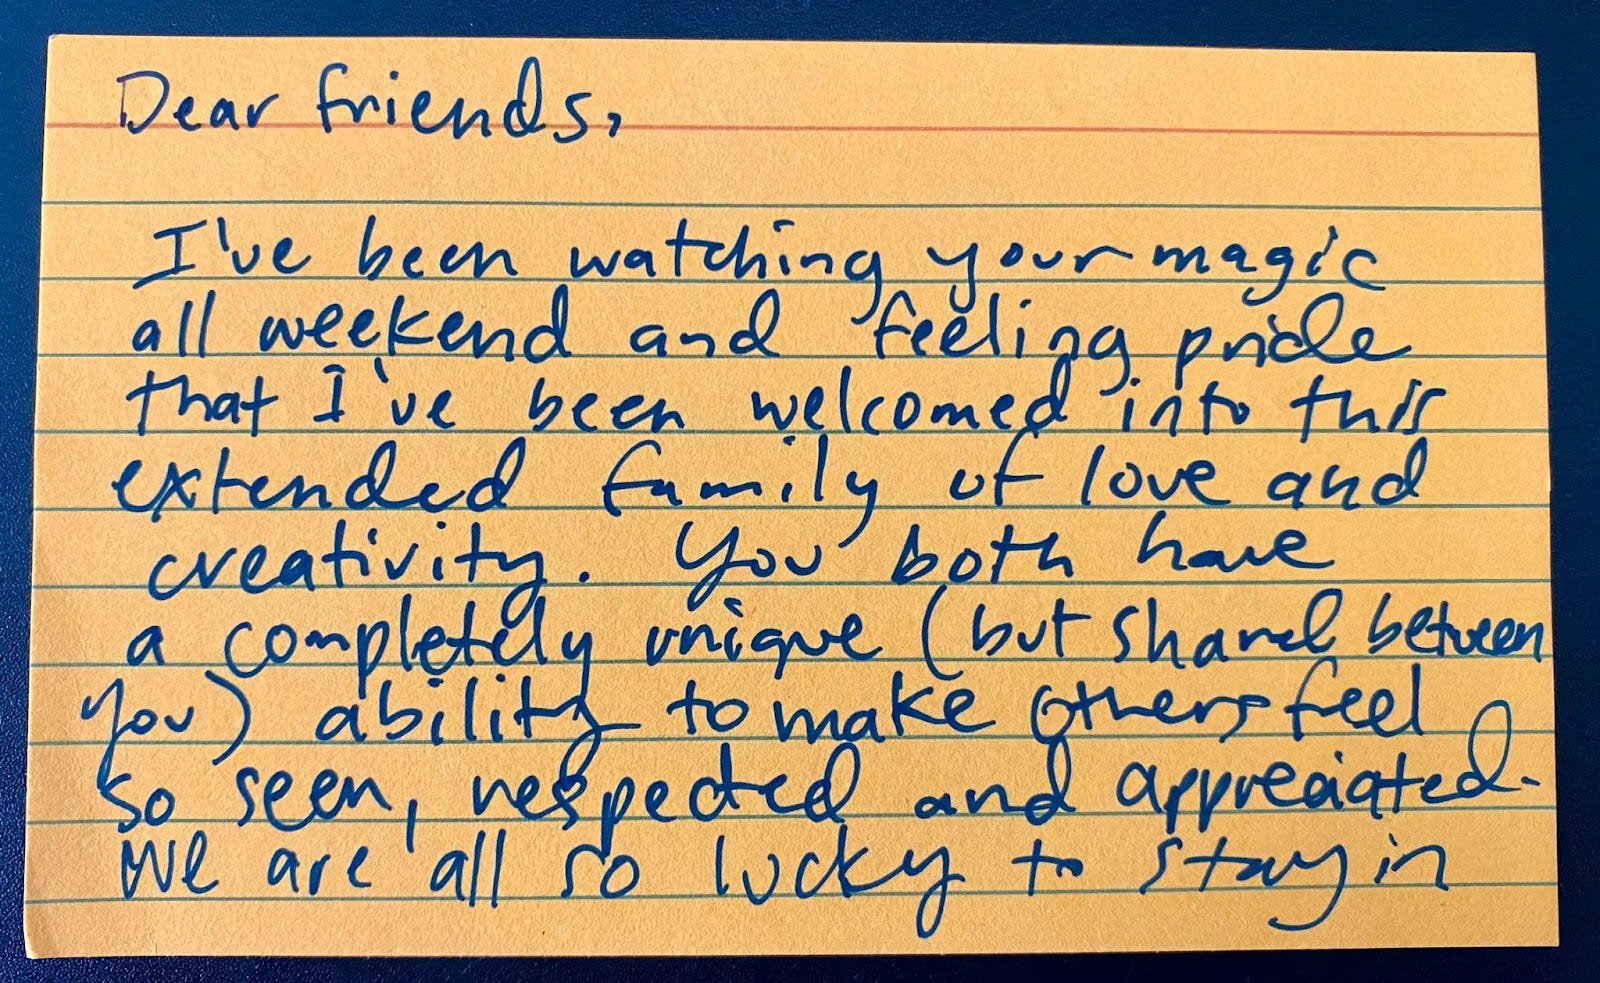 Dear friends,
I've been watching your magic
all weekend and feeling pride
that I've been welcomed into this
extended family of love and
creativity. You both have
a completely unique (but shared between
you) ability to make others feel
so seen, respected and appreciated.
We are all so lucky to stay in